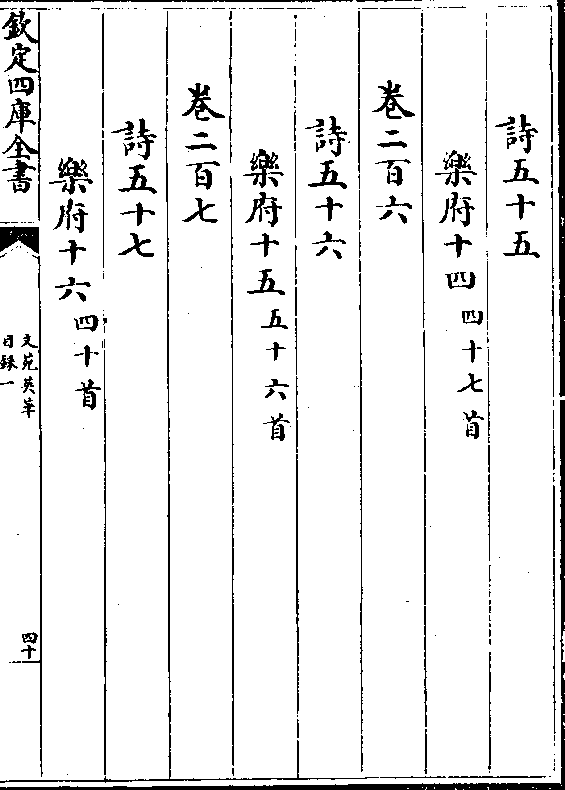 詩五十五
樂府十四四十七首
卷二百六
詩五十六
樂府十五五十六首
卷二百七
詩五十七
樂府十六四十首
欽定四庫全書
文苑英華
目錄一
四十